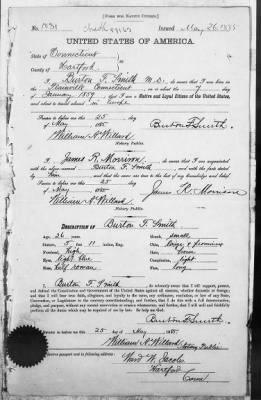 [FORM FOR NATIVE CITIZEN.]
Issued May 26 1885
UNITED STATES OF AMERICA.
State of Connecticut
County of Hartford
I, Burton F. Smith M.D., do swear that I was born in
Plainville Connecticut, on or about the 7
January 1859; that I am a Native and Loyal Citizen of the United States,
and about to travel abroad
Sworn to before me this 25 day
of May 1885
Burton F. Smith.
William H. Willard
Notary Public.
I, James R. Morrison, do swear that I am acquainted
with the above-named Burton F. Smith, and with the facts stated
by him, and that the same are true to the best of my knowledge and belief.
Sworn to before me this 25 day
of May 1885
James R. Morrison
William H. Willard
Notary Public.
DESCRIPTION OF Burton F. Smith
Age, 26 years
Mouth, small
Stature, 5 feet 11 inches, Eng.
Chin, large & prominent
Forehead, high
Hair,
Eyes, light blue
Complexion, light
Nose, half roman
Face, long
I, Burton F. Smith, do solemnly swear that I will support, protect,
and defend the Constitution and Government of the United States against all enemies, whether domestic or foreign;
and that I will bear true faith, allegiance, and loyalty to the same, any ordinance, resolution, or law of any State,
Convention, or Legislature to the contrary notwithstanding; and further, that I do this with a full determination,
pledge, and purpose, without any mental reservation or evasion whatsoever; and further, that I will well and faithfully
perform all the duties which may be required of me by law. So help me God.
Burton F. Smith.
Sworn to before me this 25 day of May 1885.
William H. Willard
Notary Public
Ward W. Jacobs
Hartford
Conn